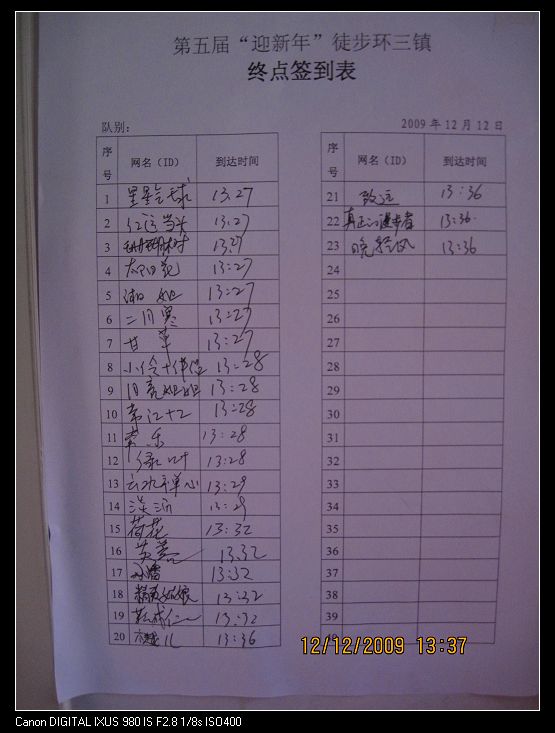 第五届“迎新年”徒步环三镇
终点签到表
队别：
2009 年 12 月 12 日
序号 网名（ID） 到达时间
1 星星气球 13.27
2 红运当头 13.27
3 13.27
4 太阳花 13:27
5 湘妲 13:27
6 二月寒 13:27
7 甘草 13:27
8 13:28
9 月亮姐姐 13:28
10 13:28
11 索乐 13:28
12 绿叶 13:28
13 13:29
14 13:29
15 荷花 13:32
16 英姿 13.32
17 13:32
18 13:32
19 13:32
20 13:36
序号 网名（ID） 到达时间
21 致远 13:36
22 真正的进步者 13:36.
23 晓轻风 13:36
24
25
26
27
28
29
30
31
32
33
34
35
36
37
38
39
12/12/2009 13:37
Canon DIGITAL IXUS 980 IS F2.8 1/8s ISO400